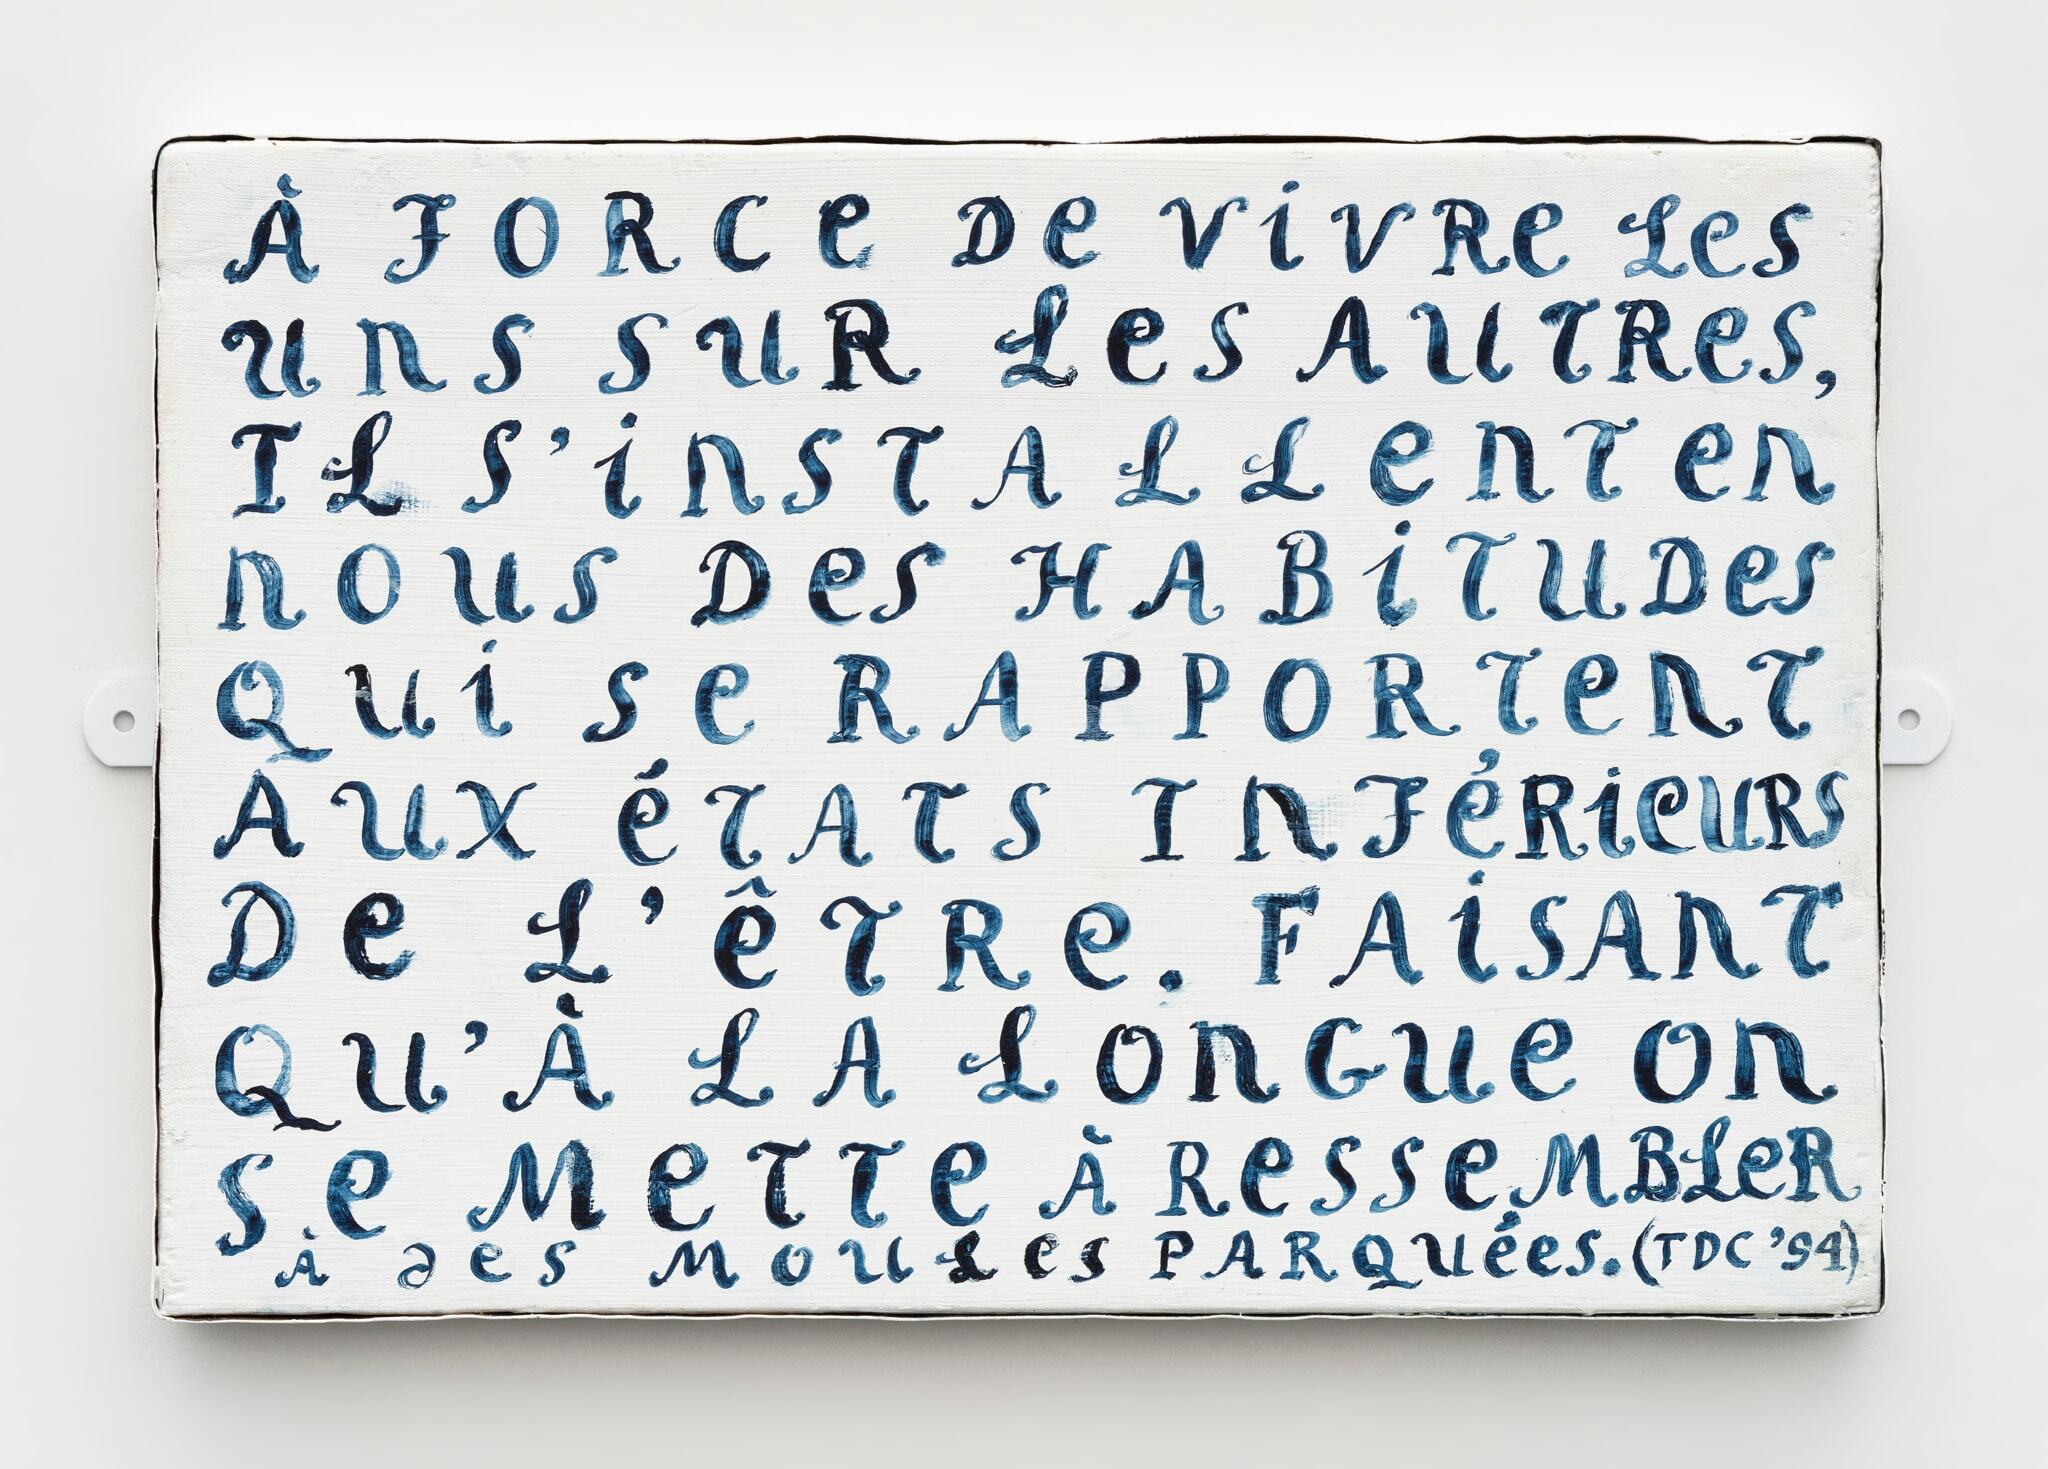 À FORCE DE ViVRe Les
uns sur Les AUTRes,
IL S'inSTALLenT en
nous Des HABiTUDes
Qui se RAPPORTenT
AUX éTATS InFéRieURS
De L'êTRe. FAiSAnT
Qu'À LA LOnGue On
se MeTTe À ResseMBLeR
À des MOULes PARQUées. (TDC '94)